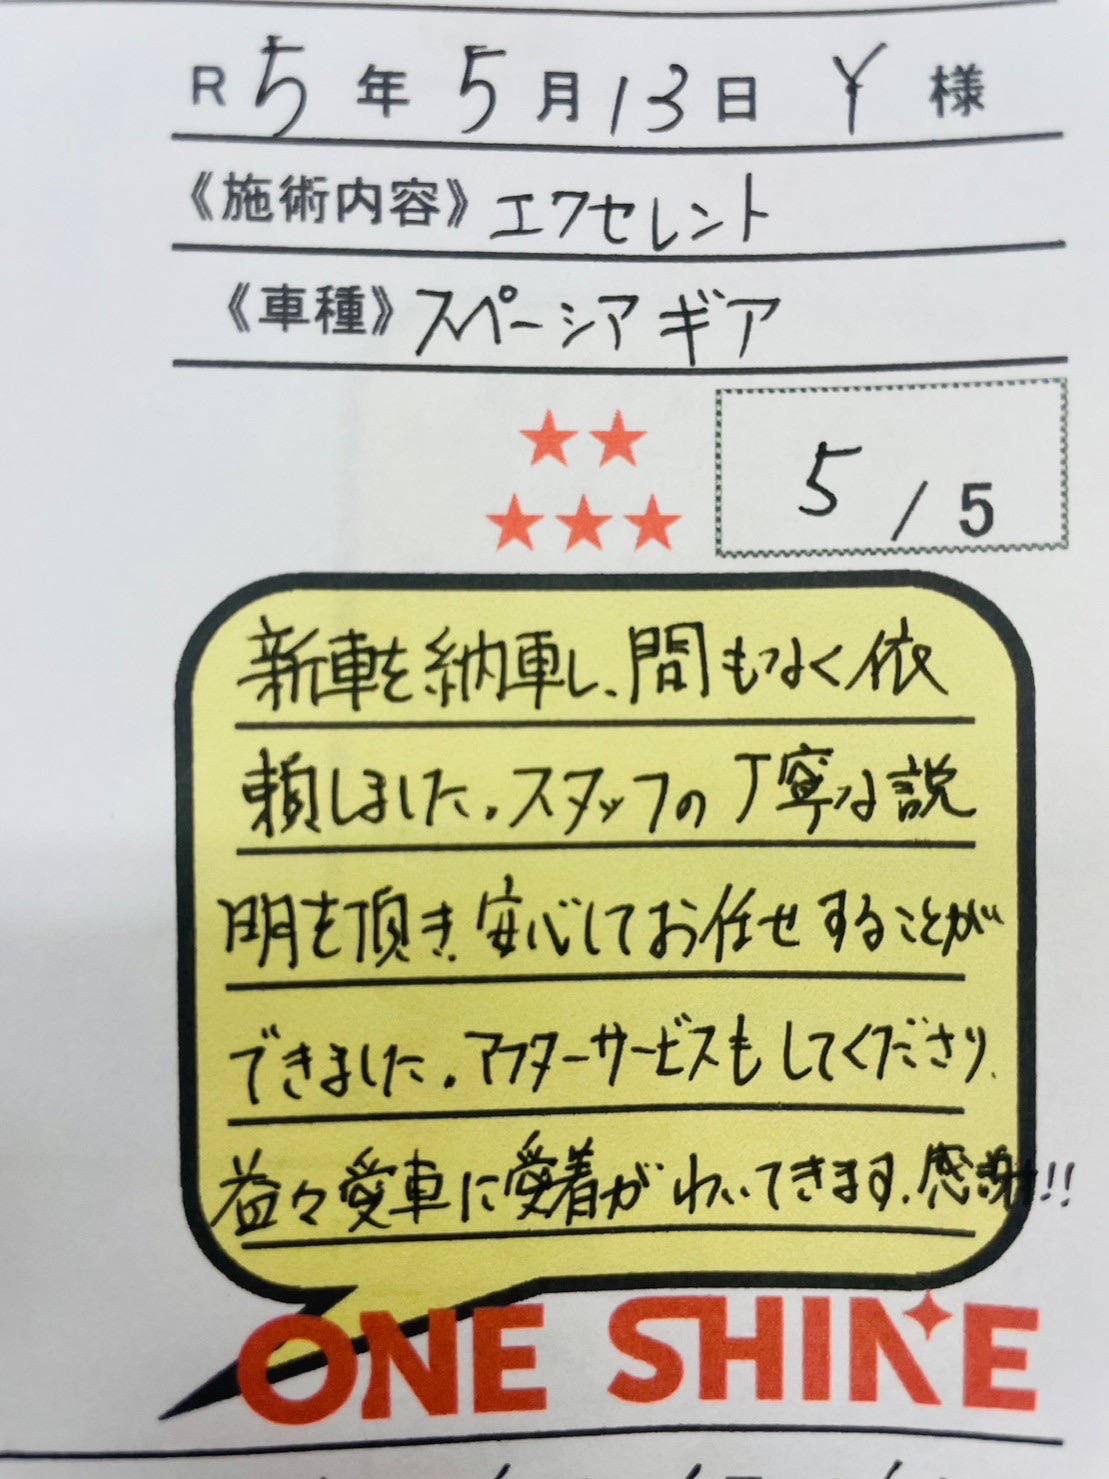 R 5年 5月13日 Y 様
《施術内容》エクセレント
《車種》スペーシア ギア
★★
★★★
5 / 5
新車を納車し、間もなく依
頼しました。スタッフの丁寧な説
明を頂き安心してお任せすることが
できました。アフターサービスもしてくださり、
益々愛車に愛着がわいてきます。感謝!!
ONE SHINE